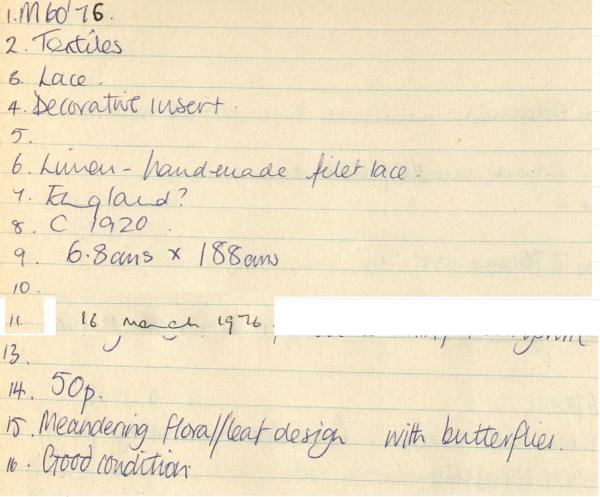 1. M60'76.
2. Textiles
3. Lace.
4. Decorative insert.
5.
6. Linen - handmade filet lace.
7. England?
8. C 1920.
9. 6.8cms x 188cms
10.
11. 16 march 1976.
13.
14. 50p.
15. Meandering floral/leaf design with butterflies.
16. Good condition